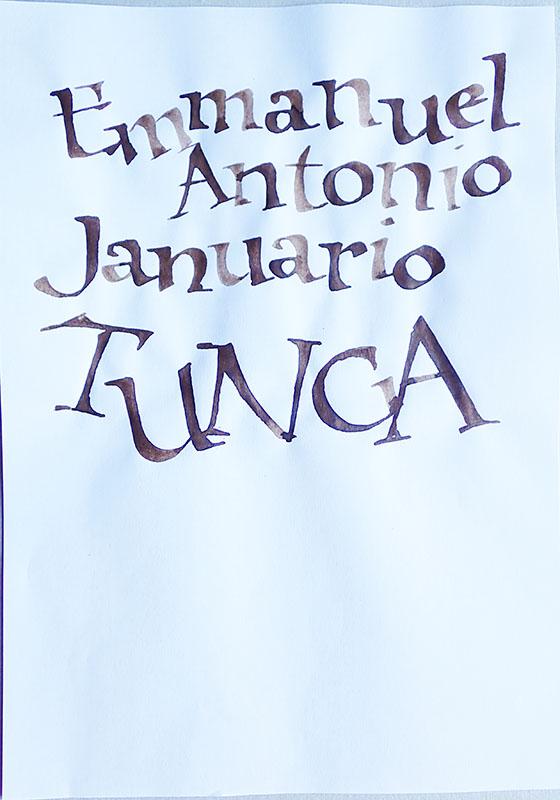 Emmanuel
Antonio
Januario
TUNGA